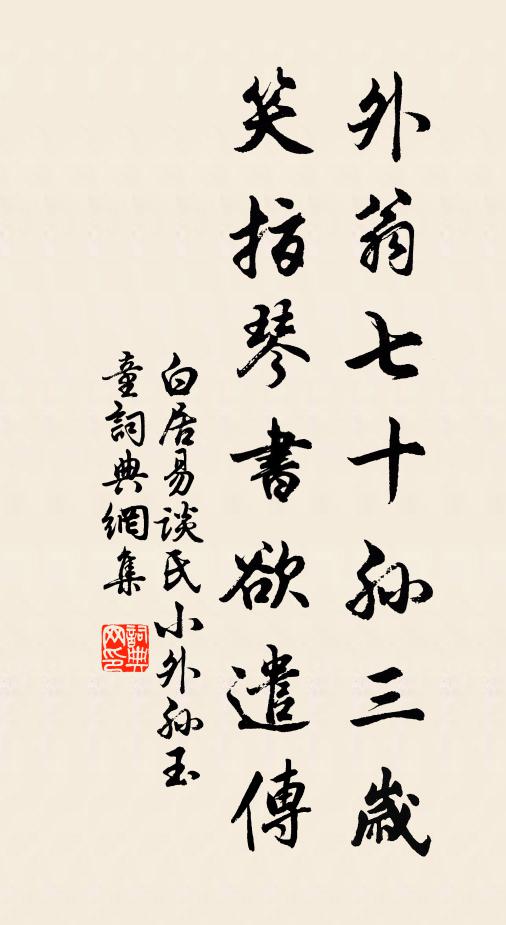 外翁七十孙三歲
笑指琴書欲遣傳
白居易談氏小外孙玉
童詞典網集
詞典网印